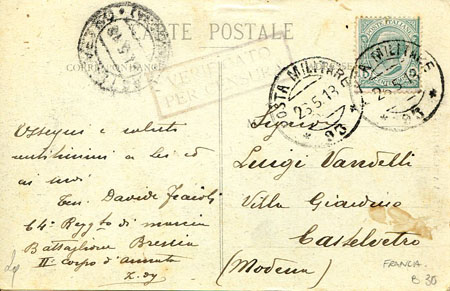 CARTE POSTALE
CORRESPONDANCE
VERIFICATO
PER CENSURA
POSTA MILITARE
26.5.18
* 93 *
POSTA MILITARE
26.5.18
* 93 *
POSTE ITALIANE
Ossequi e saluti
a Lei ed
ai suoi
Ten. Davide
64° Regg.to di marcia
Battaglione Brescia
II° corpo d'armata
Z. di g
Signor
Luigi Vandelli
Villa Giardino
Castelvetro
(Modena)
FRANCIA.
B 30